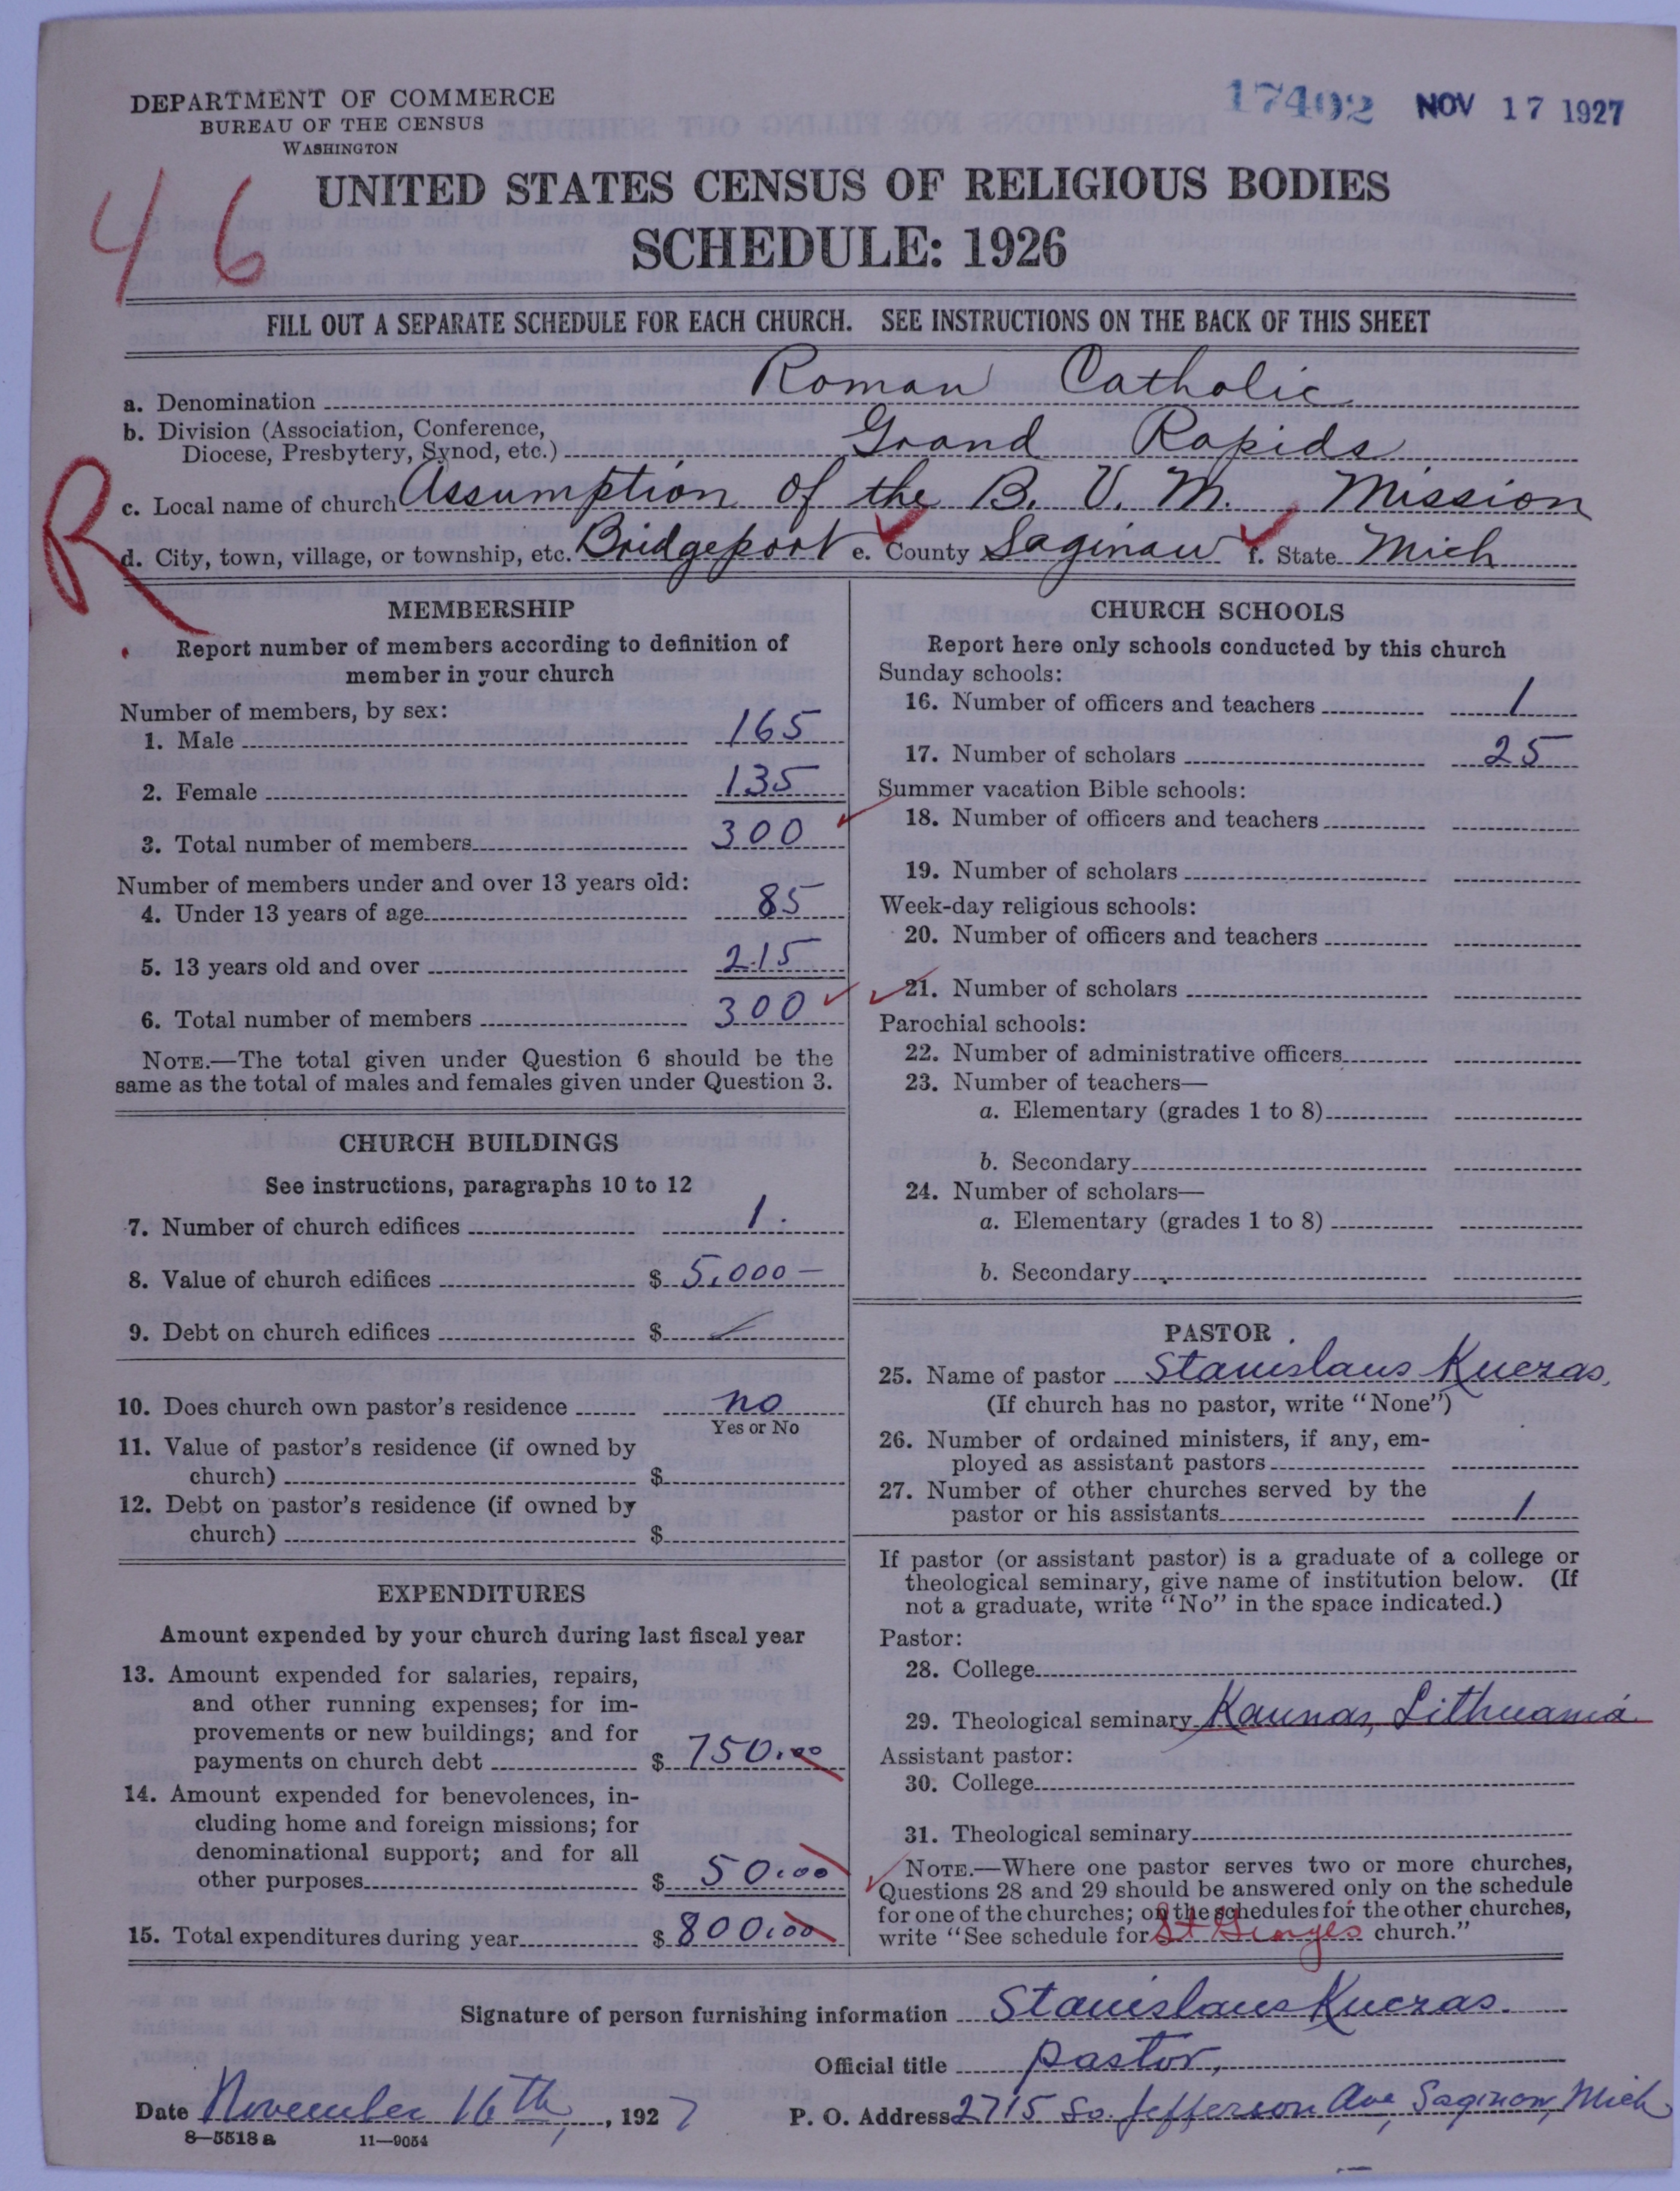 DEPARTMENT OF COMMERCE
BUREAU OF THE CENSUS
WASHINGTON
17402 NOV 17 1927
46
UNITED STATES CENSUS OF RELIGIOUS BODIES
SCHEDULE: 1926
FILL OUT A SEPARATE SCHEDULE FOR EACH CHURCH. SEE INSTRUCTIONS ON THE BACK OF THIS SHEET
a. Denomination Roman Catholic
b. Division (Association, Conference,
Diocese, Presbytery, Synod, etc.) Grand Rapids
R
c. Local name of church Assumption of the B. V. M. Mission
d. City, town, village, or township, etc. Bridgeport e. County Saginaw f. State Mich
MEMBERSHIP
Report number of members according to definition of
member in your church
Number of members, by sex:
1. Male 165
2. Female 135
3. Total number of members 300
Number of members under and over 13 years old:
4. Under 13 years of age 85
5. 13 years old and over 215
6. Total number of members 300
NOTE.—The total given under Question 6 should be the
same as the total of males and females given under Question 3.
CHURCH BUILDINGS
See instructions, paragraphs 10 to 12
7. Number of church edifices 1.
8. Value of church edifices $ 5,000—
9. Debt on church edifices $
10. Does church own pastor's residence no
Yes or No
11. Value of pastor's residence (if owned by
church) $
12. Debt on pastor's residence (if owned by
church) $
EXPENDITURES
Amount expended by your church during last fiscal year
13. Amount expended for salaries, repairs,
and other running expenses; for im-
provements or new buildings; and for
payments on church debt $ 750.00
14. Amount expended for benevolences, in-
cluding home and foreign missions; for
denominational support; and for all
other purposes $ 50.00
15. Total expenditures during year $ 800.00
CHURCH SCHOOLS
Report here only schools conducted by this church
Sunday schools:
16. Number of officers and teachers 1
17. Number of scholars 25
Summer vacation Bible schools:
18. Number of officers and teachers
19. Number of scholars
Week-day religious schools:
20. Number of officers and teachers
21. Number of scholars
Parochial schools:
22. Number of administrative officers
23. Number of teachers—
a. Elementary (grades 1 to 8)
b. Secondary
24. Number of scholars—
a. Elementary (grades 1 to 8)
b. Secondary
PASTOR
25. Name of pastor Stanislaus Kuczas,
(If church has no pastor, write "None")
26. Number of ordained ministers, if any, em-
ployed as assistant pastors
27. Number of other churches served by the
pastor or his assistants 1
If pastor (or assistant pastor) is a graduate of a college or
theological seminary, give name of institution below. (If
not a graduate, write "No" in the space indicated.)
Pastor:
28. College
29. Theological seminary Kaunas, Lithuania
Assistant pastor:
30. College
31. Theological seminary
NOTE.—Where one pastor serves two or more churches,
Questions 28 and 29 should be answered only on the schedule
for one of the churches; on the schedules for the other churches,
write "See schedule for St Georges church."
Signature of person furnishing information Stanislaus Kuczas.
Official title pastor,
Date November 16th, 1927 P. O. Address 2715 So. Jefferson Ave, Saginaw, Mich
8—5518 a 11—9054